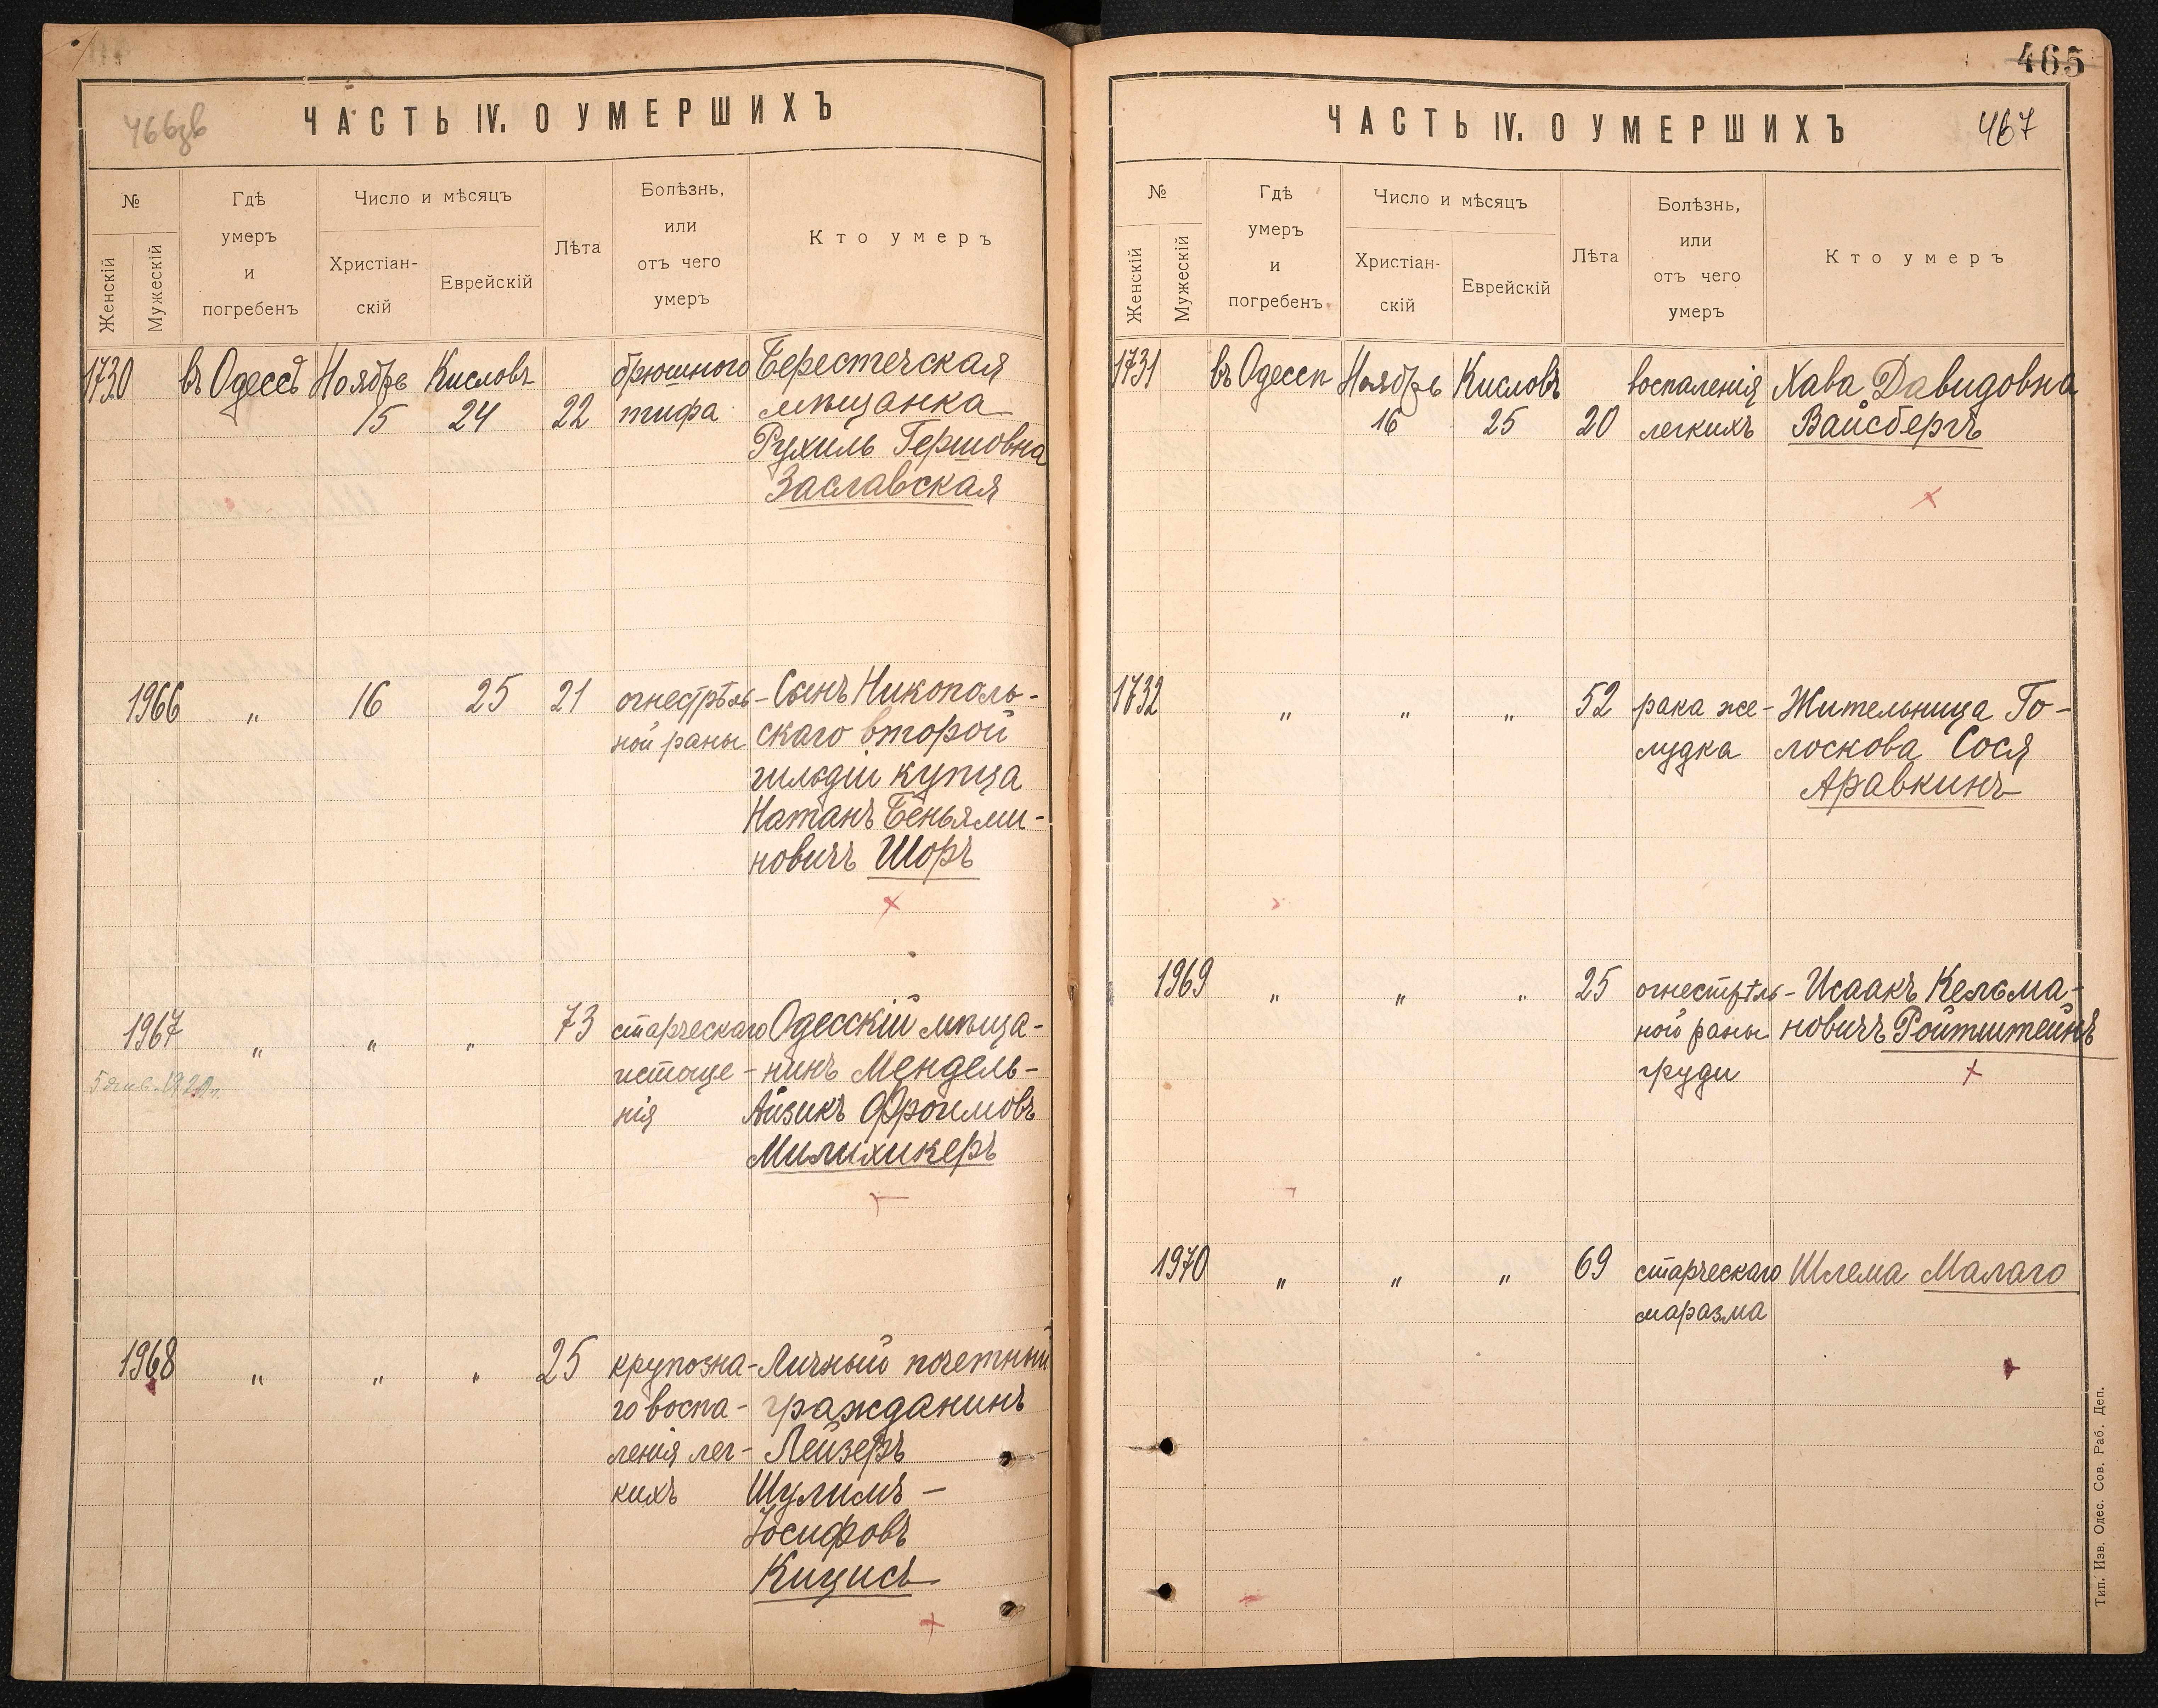 466зв
ЧАСТЬ IV. О УМЕРШИХЪ
№
Женскій
Мужескій
Гдѣ
умеръ
и
погребенъ
Число и мѣсяцъ
Христіан-
скій
Еврейскій
Лѣта
Болѣзнь,
или
отъ чего
умеръ
Кто умеръ
1730 въ Одессѣ Ноябрь Кисловъ брюшного Берестечская
15 24 22 тифа мѣщанка
Рухиль Гершовна
Заславская
1966 " 16 25 21 огнестрѣль- Сынъ Никополь-
ной раны скаго второй
гильдіи купца
Натанъ Беньями-
новичъ Шоръ
1967 " " " 73 старческаго Одесскій мѣща-
истоще- нинъ Мендель-
нія Айзикъ Фроимовъ
Милихикеръ
1968 " " " 25 крупозна- Личный почетный
го воспа- гражданинъ
ленія лег- Лейзеръ
кихъ Шулимъ-
Іосифовъ
Кицисъ
465
ЧАСТЬ IV. О УМЕРШИХЪ
467
№
Женскій
Мужескій
Гдѣ
умеръ
и
погребенъ
Число и мѣсяцъ
Христіан-
скій
Еврейскій
Лѣта
Болѣзнь,
или
отъ чего
умеръ
Кто умеръ
1731 въ Одессѣ Ноябрь Кисловъ воспаленія Хава Давидовна
16 25 20 легкихъ Вайсбергъ
1732 " " " 52 рака же- Жительница Го-
лудка лоскова Сося
Аравкинъ
1969 " " " 25 огнестрѣль- Исаакъ Кельма-
ной раны новичъ Ройтштейнъ
груди
1970 " " " 69 старческаго Шлема Малаго
маразма
Тип. Изв. Одес. Сов. Раб. Деп.